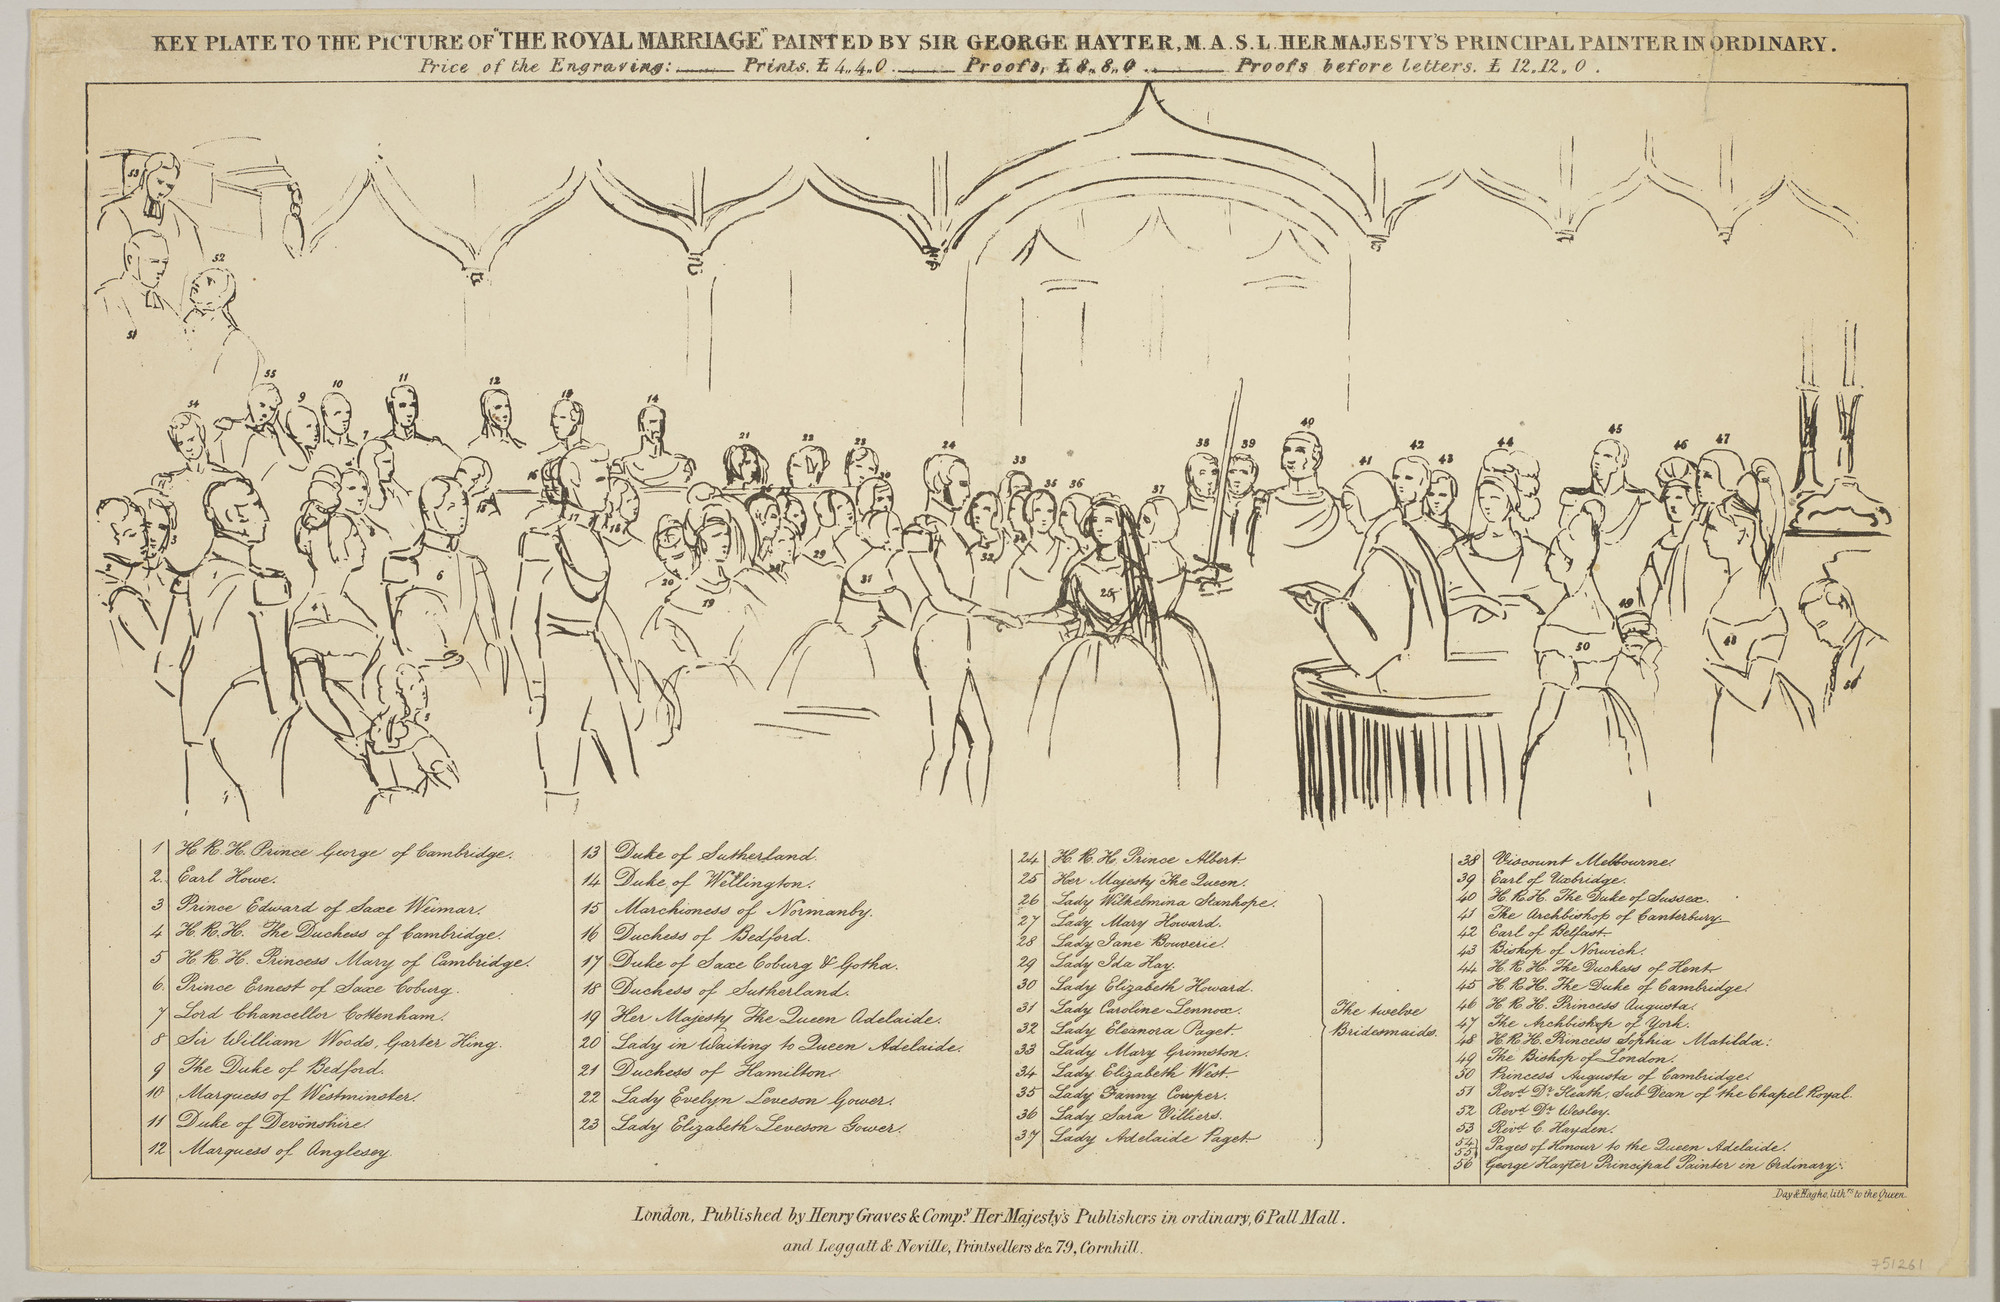 KEY PLATE TO THE PICTURE OF "THE ROYAL MARRIAGE" PAINTED BY SIR GEORGE HAYTER, M.A.S.L. HER MAJESTY'S PRINCIPAL PAINTER IN ORDINARY.
Price of the Engraving: Prints, £ 4,,4,,0. Proofs, £ 8,,8,,0. Proofs before letters. £ 12,,12,,0.
1 H.R.H. Prince George of Cambridge.
2. Earl Howe.
3 Prince Edward of Saxe Weimar.
4 H.R.H. The Duchess of Cambridge.
5 H.R.H. Princess Mary of Cambridge.
6. Prince Ernest of Saxe Coburg.
7 Lord Chancellor Cottenham.
8 Sir William Woods, Garter King.
9 The Duke of Bedford.
10 Marquess of Westminster.
11 Duke of Devonshire.
12 Marquess of Anglesey
13 Duke of Sutherland.
14 Duke of Wellington.
15 Marchioness of Normanby.
16 Duchess of Bedford.
17 Duke of Saxe Coburg & Gotha.
18 Duchess of Sutherland.
19 Her Majesty The Queen Adelaide.
20 Lady in Waiting to Queen Adelaide.
21 Duchess of Hamilton.
22 Lady Evelyn Leveson Gower.
23 Lady Elizabeth Leveson Gower.
24 H.R.H. Prince Albert
25 Her Majesty The Queen.
26 Lady Wilhelmina Stanhope.
27 Lady Mary Howard.
28 Lady Jane Bouverie.
29 Lady Ida Hay.
30 Lady Elizabeth Howard.
31 Lady Caroline Lennox.
32 Lady Eleanora Paget
33 Lady Mary Grimston.
34 Lady Elizabeth West.
35 Lady Fanny Cowper.
36 Lady Sara Villiers.
37 Lady Adelaide Paget
The twelve
Bridesmaids.
38 Viscount Melbourne.
39 Earl of Uxbridge.
40 H.R.H. The Duke of Sussex.
41 The Archbishop of Canterbury
42 Earl of Belfast
43 Bishop of Norwich.
44 H.R.H. The Duchess of Kent
45 H.R.H. The Duke of Cambridge.
46 H.R.H. Princess Augusta.
47 The Archbishop of York.
48 H.R.H. Princess Sophia Matilda.
49 The Bishop of London.
50 Princess Augusta of Cambridge.
51 Revd. Dr. Sleath, Sub Dean of the Chapel Royal.
52 Revd. Dr. Wesley.
53 Revd. C. Hayden.
54 55 Pages of Honour to the Queen Adelaide.
56 George Hayter Principal Painter in Ordinary.
Day & Haghe, lithrs. to the Queen
London, Published by Henry Graves & Compy. Her Majesty's Publishers in ordinary, 6 Pall Mall.
and Leggatt & Neville, Printsellers &c. 79, Cornhill.
751261